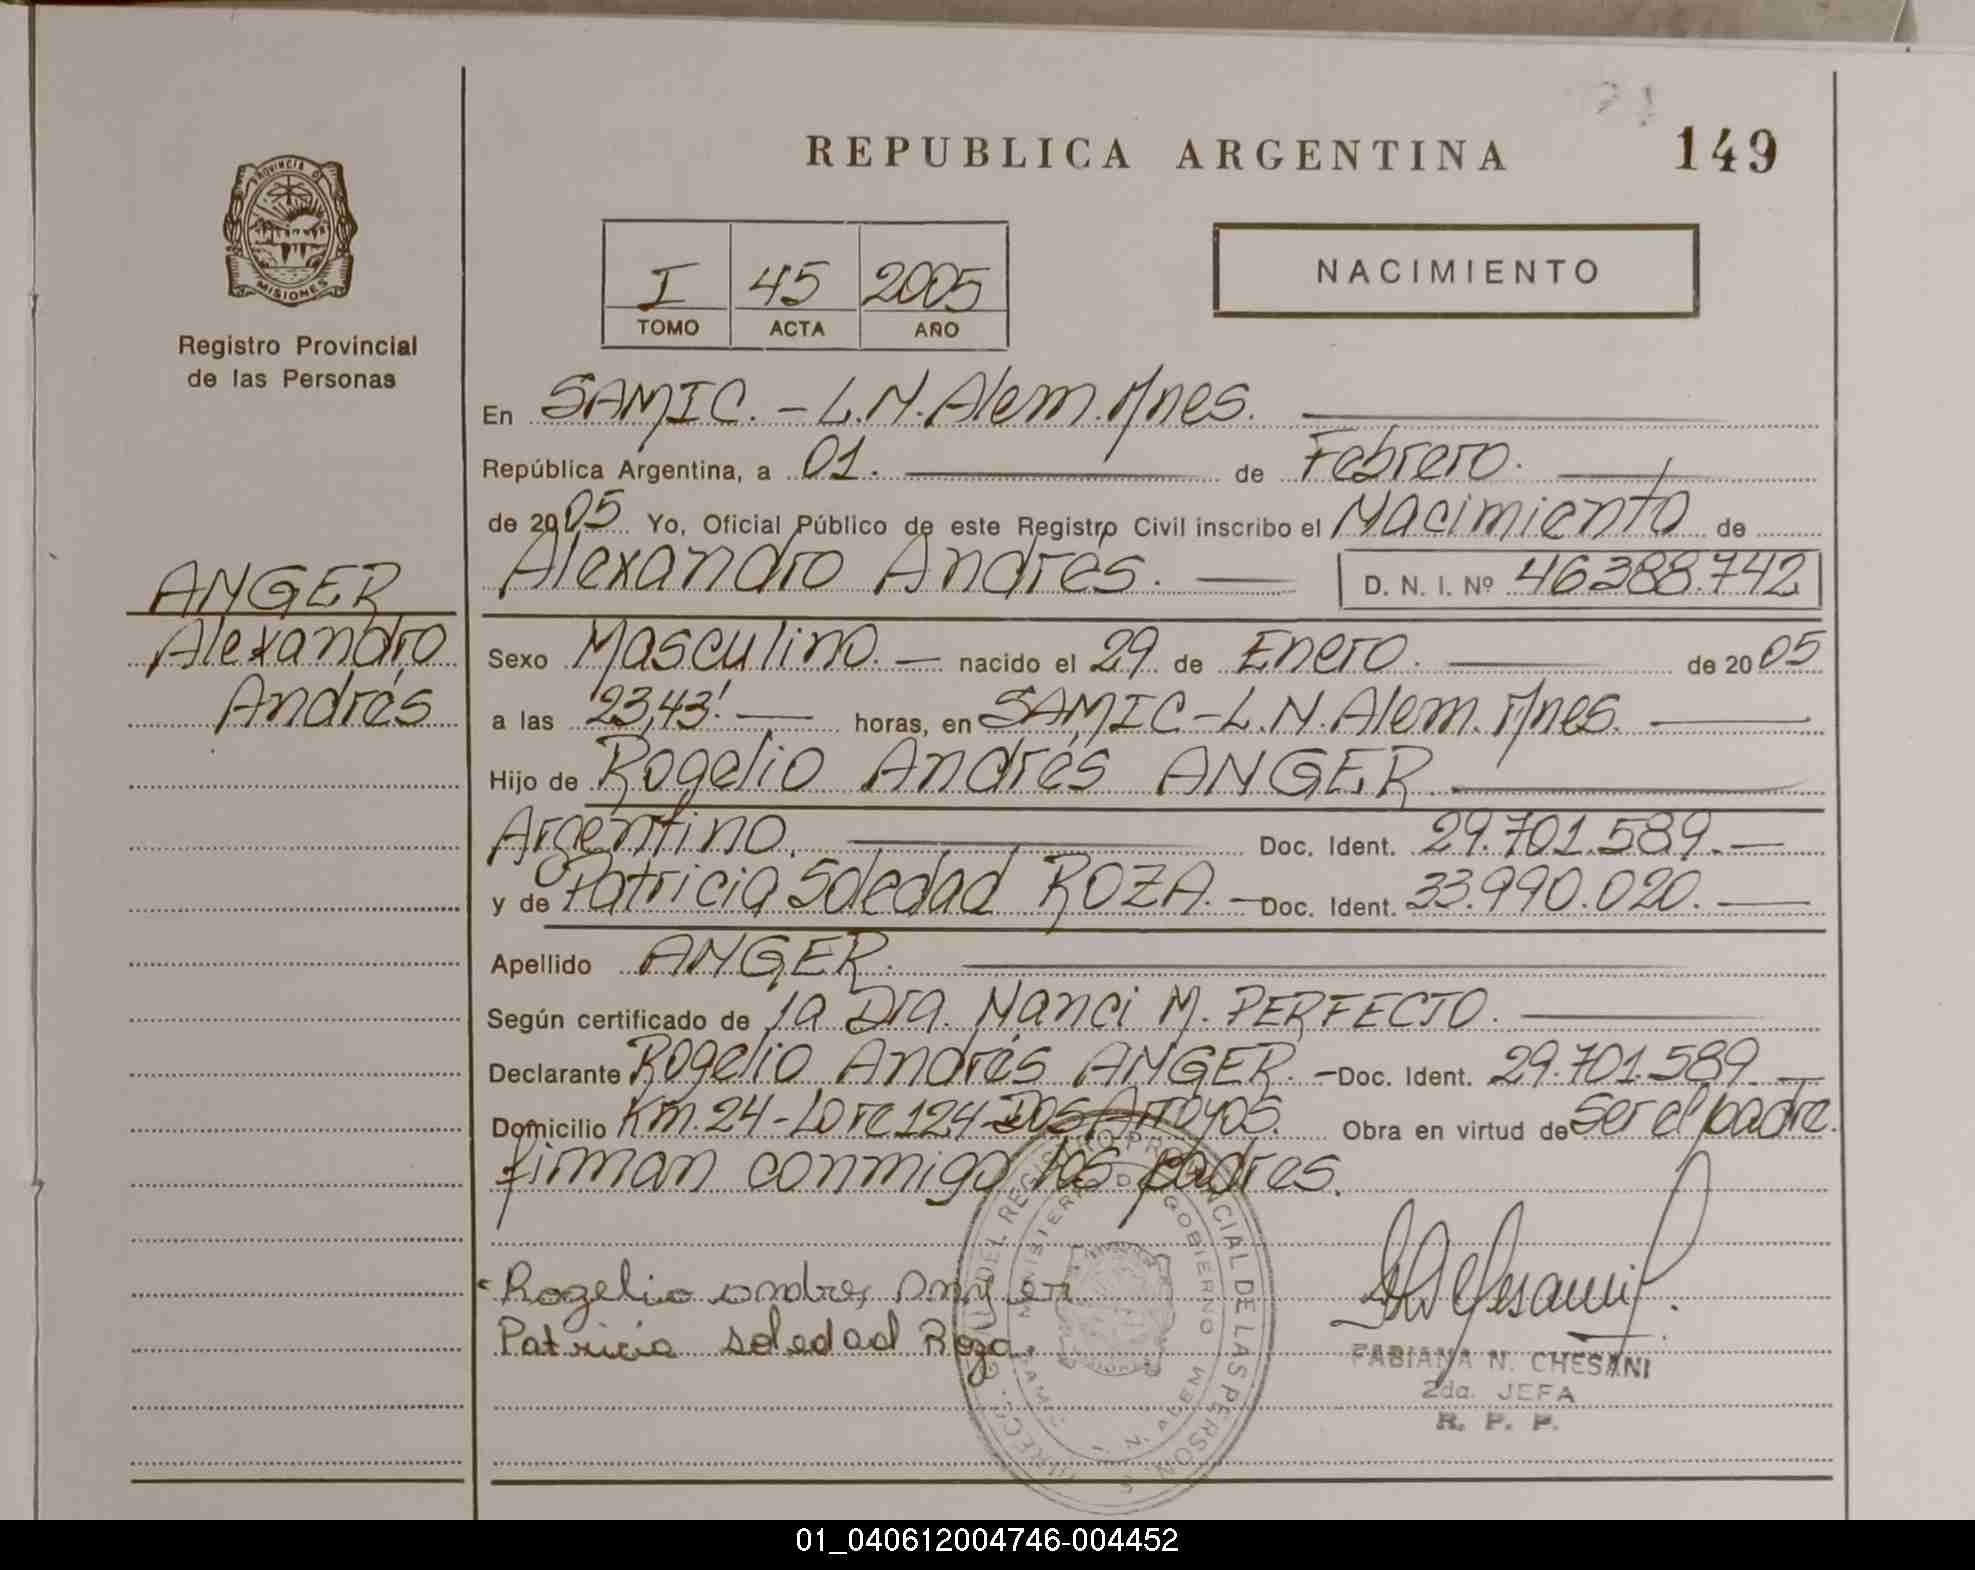 REPUBLICA ARGENTINA
149
PROVINCIA DE
MISIONES
Registro Provincial
de las Personas
I 45 2005
TOMO ACTA AÑO
NACIMIENTO
En SAMIC. - L.N. Alem. Mnes.
República Argentina, a 01. de Febrero.
de 2005 Yo, Oficial Público de este Registro Civil inscribo el Nacimiento de
Alexandro Andrés. D. N. I. Nº 46388.742
ANGER
Alexandro
Andrés
Sexo Masculino. - nacido el 29 de Enero. de 2005
a las 23,43'. horas, en SAMIC - L.N. Alem. Mnes.
Hijo de Rogelio Andrés ANGER
Argentino. Doc. Ident. 29.701.589. -
y de Patricia Soledad ROZA. - Doc. Ident. 33.990.020.
Apellido ANGER.
Según certificado de la Dra. Nanci M. PERFECTO.
Declarante Rogelio Andrés ANGER. - Doc. Ident. 29.701.589
Domicilio Km. 24 - Lote 124 - Dos Arroyos. Obra en virtud de Ser el padre.
firman conmigo los padres.
Rogelio andres Anger
Patricia soledad Roza.
DEL REGISTRO PROVINCIAL DE LAS PERSONAS
MINISTERIO DE GOBIERNO
L. N. ALEM
FABIANA N. CHESANI
2da. JEFA
R. P. P.
01_040612004746-004452